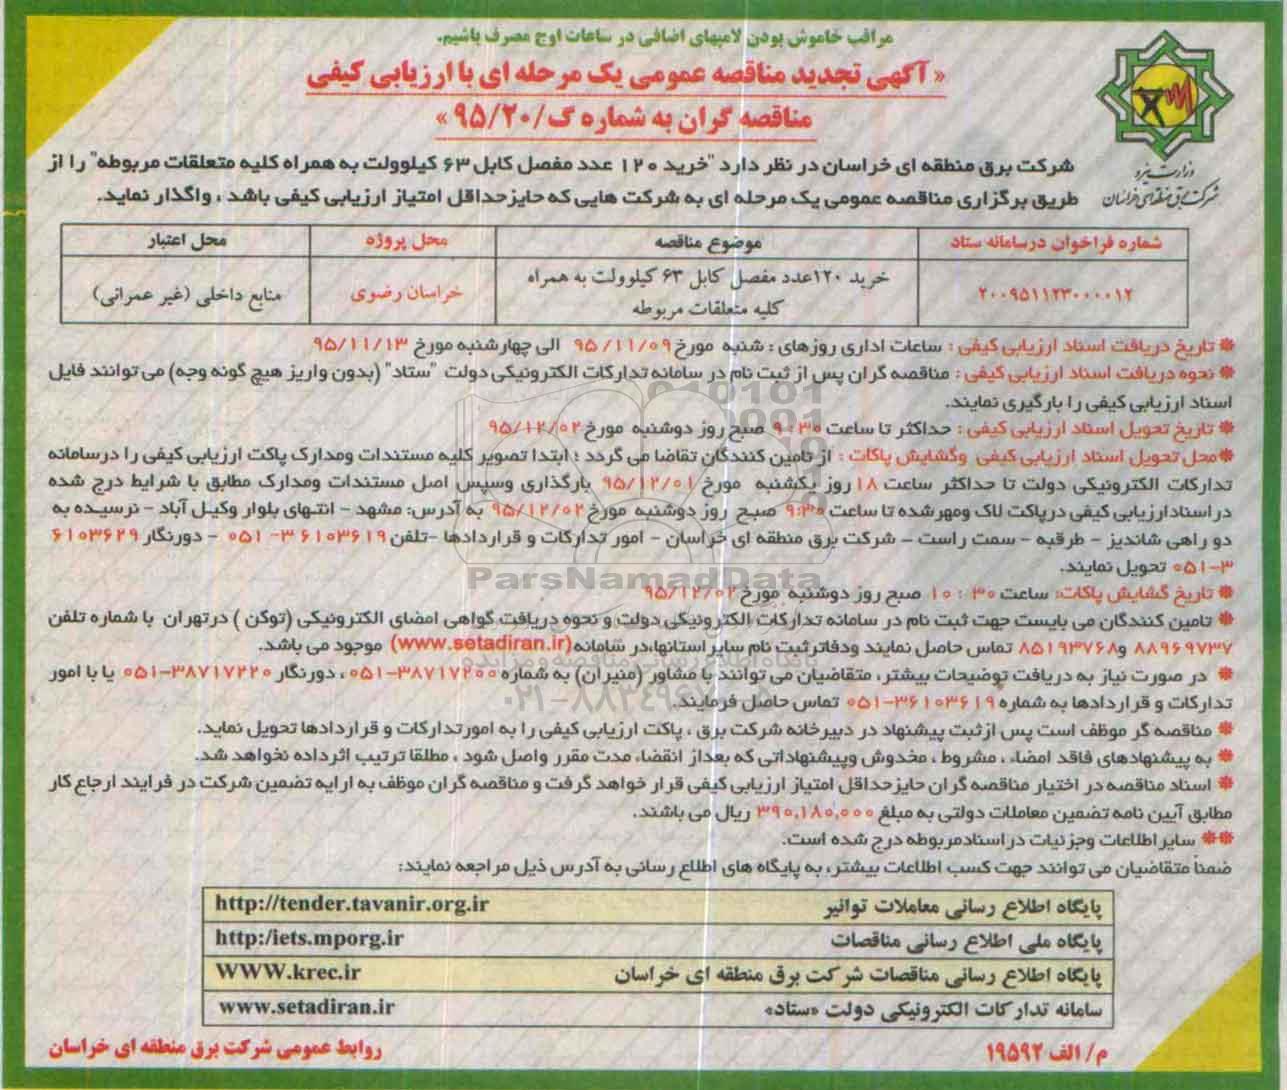 مراقب خاموش بودن لامپهای اضافی در ساعات اوج مصرف باشیم.
« آگهی تجدید مناقصه عمومی یک مرحله ای با ارزیابی کیفی
مناقصه گران به شماره گ/۹۵/۲۰ »
وزارت نیرو
شرکت برق منطقه ای خراسان
شرکت برق منطقه ای خراسان در نظر دارد "خرید ۱۲۰ عدد مفصل کابل ۶۳ کیلوولت به همراه کلیه متعلقات مربوطه" را از
طریق برگزاری مناقصه عمومی یک مرحله ای به شرکت هایی که حایزحداقل امتیاز ارزیابی کیفی باشد ، واگذار نماید.
شماره فراخوان درسامانه ستاد موضوع مناقصه محل پروژه محل اعتبار
۲۰۰۹۵۱۱۲۳۰۰۰۰۱۲ خرید ۱۲۰عدد مفصل کابل ۶۳ کیلوولت به همراه خراسان رضوی منابع داخلی (غیر عمرانی)
کلیه متعلقات مربوطه
* تاریخ دریافت اسناد ارزیابی کیفی : ساعات اداری روزهای : شنبه مورخ ۹۵/۱۱/۰۹ الی چهارشنبه مورخ ۹۵/۱۱/۱۳
* نحوه دریافت اسناد ارزیابی کیفی : مناقصه گران پس از ثبت نام در سامانه تدارکات الکترونیکی دولت "ستاد" (بدون واریز هیچ گونه وجه) می توانند فایل
اسناد ارزیابی کیفی را بارگیری نمایند.
* تاریخ تحویل اسناد ارزیابی کیفی : حداکثر تا ساعت ۹:۳۰ صبح روز دوشنبه مورخ ۹۵/۱۲/۰۲
*محل تحویل اسناد ارزیابی کیفی وگشایش پاکات : از تامین کنندگان تقاضا می گردد ؛ ابتدا تصویر کلیه مستندات ومدارک پاکت ارزیابی کیفی را درسامانه
تدارکات الکترونیکی دولت تا حداکثر ساعت ۱۸ روز یکشنبه مورخ ۹۵/۱۲/۰۱ بارگذاری وسپس اصل مستندات ومدارک مطابق با شرایط درج شده
در اسنادارزیابی کیفی درپاکت لاک ومهرشده تا ساعت ۹:۳۰ صبح روز دوشنبه مورخ ۹۵/۱۲/۰۲ به آدرس: مشهد - انتهای بلوار وکیل آباد - نرسیده به
دو راهی شاندیز - طرقبه - سمت راست - شرکت برق منطقه ای خراسان - امور تدارکات و قراردادها -تلفن ۳۶۱۰۳۶۱۹-۰۵۱ - دورنگار ۶۱۰۳۶۲۹
۰۵۱-۳ تحویل نمایند.
* تاریخ گشایش پاکات: ساعت ۱۰:۳۰ صبح روز دوشنبه مورخ ۹۵/۱۲/۰۲
* تامین کنندگان می بایست جهت ثبت نام در سامانه تدارکات الکترونیکی دولت و نحوه دریافت گواهی امضای الکترونیکی (توکن ) درتهران با شماره تلفن
۸۸۹۶۹۷۳۷ و۸۵۱۹۳۷۶۸ تماس حاصل نمایند ودفاترثبت نام سایر استانها،در سامانه (www.setadiran.ir) موجود می باشد.
* در صورت نیاز به دریافت توضیحات بیشتر، متقاضیان می توانند با مشاور (منیران) به شماره ۳۸۷۱۷۲۰۰-۰۵۱ ، دورنگار ۳۸۷۱۷۲۲۰-۰۵۱ یا با امور
تدارکات و قراردادها به شماره ۳۶۱۰۳۶۱۹-۰۵۱ تماس حاصل فرمایند.
* مناقصه گر موظف است پس ازثبت پیشنهاد در دبیرخانه شرکت برق ، پاکت ارزیابی کیفی را به امورتدارکات و قراردادها تحویل نماید.
* به پیشنهادهای فاقد امضاء ، مشروط ، مخدوش وپیشنهاداتی که بعداز انقضاء مدت مقرر واصل شود ، مطلقا ترتیب اثرداده نخواهد شد.
* اسناد مناقصه در اختیار مناقصه گران حایزحداقل امتیاز ارزیابی کیفی قرار خواهد گرفت و مناقصه گران موظف به ارایه تضمین شرکت در فرایند ارجاع کار
مطابق آیین نامه تضمین معاملات دولتی به مبلغ ۳۹۰,۱۸۰,۰۰۰ ریال می باشند.
** سایراطلاعات وجزئیات دراسنادمربوطه درج شده است.
ضمناً متقاضیان می توانند جهت کسب اطلاعات بیشتر، به پایگاه های اطلاع رسانی به آدرس ذیل مراجعه نمایند:
پایگاه اطلاع رسانی معاملات توانیر http://tender.tavanir.org.ir
پایگاه ملی اطلاع رسانی مناقصات http:/iets.mporg.ir
پایگاه اطلاع رسانی مناقصات شرکت برق منطقه ای خراسان WWW.krec.ir
سامانه تدارکات الکترونیکی دولت «ستاد» www.setadiran.ir
م/ الف ۱۹۵۹۲ روابط عمومی شرکت برق منطقه ای خراسان
ParsNamadData
پایگاه اطلاع رسانی مناقصه و مزایده